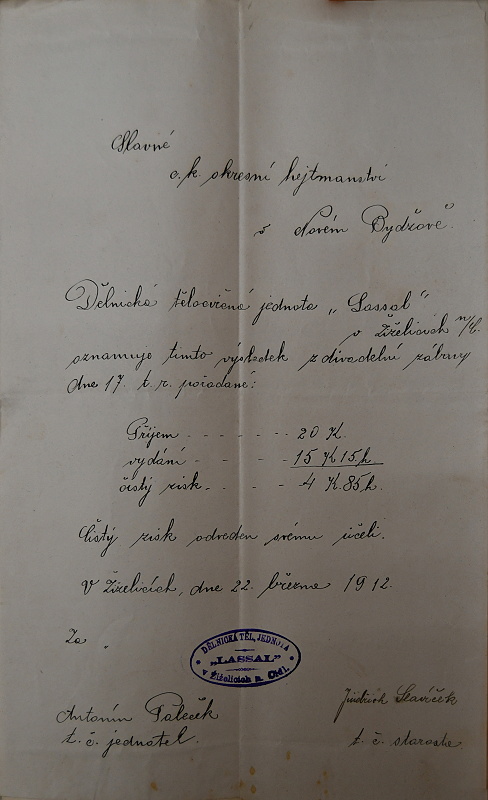 Slavné
c. k. okresní hejtmanství
v Novém Bydžově.
Dělnická tělocvičná jednota „Lassal“
v Žiželicích n/C.
oznamuje tímto výsledek z divadelní zábavy
dne 17. t. r. pořádané:
Příjem - - - - - - - 20 K.
vydání - - - - - 15 K 15 h.
čistý zisk - - - - - 4 K. 85 h.
Čistý zisk odveden svému účeli.
V Žiželicích, dne 22. března 1912.
Za „
DĚLNICKÁ TĚL. JEDNOTA
„LASSAL“
v Žiželicích n. Cidl.
Antonín Páleček
t. č. jednatel.
Jindřich Slavíček
t. č. starosta.